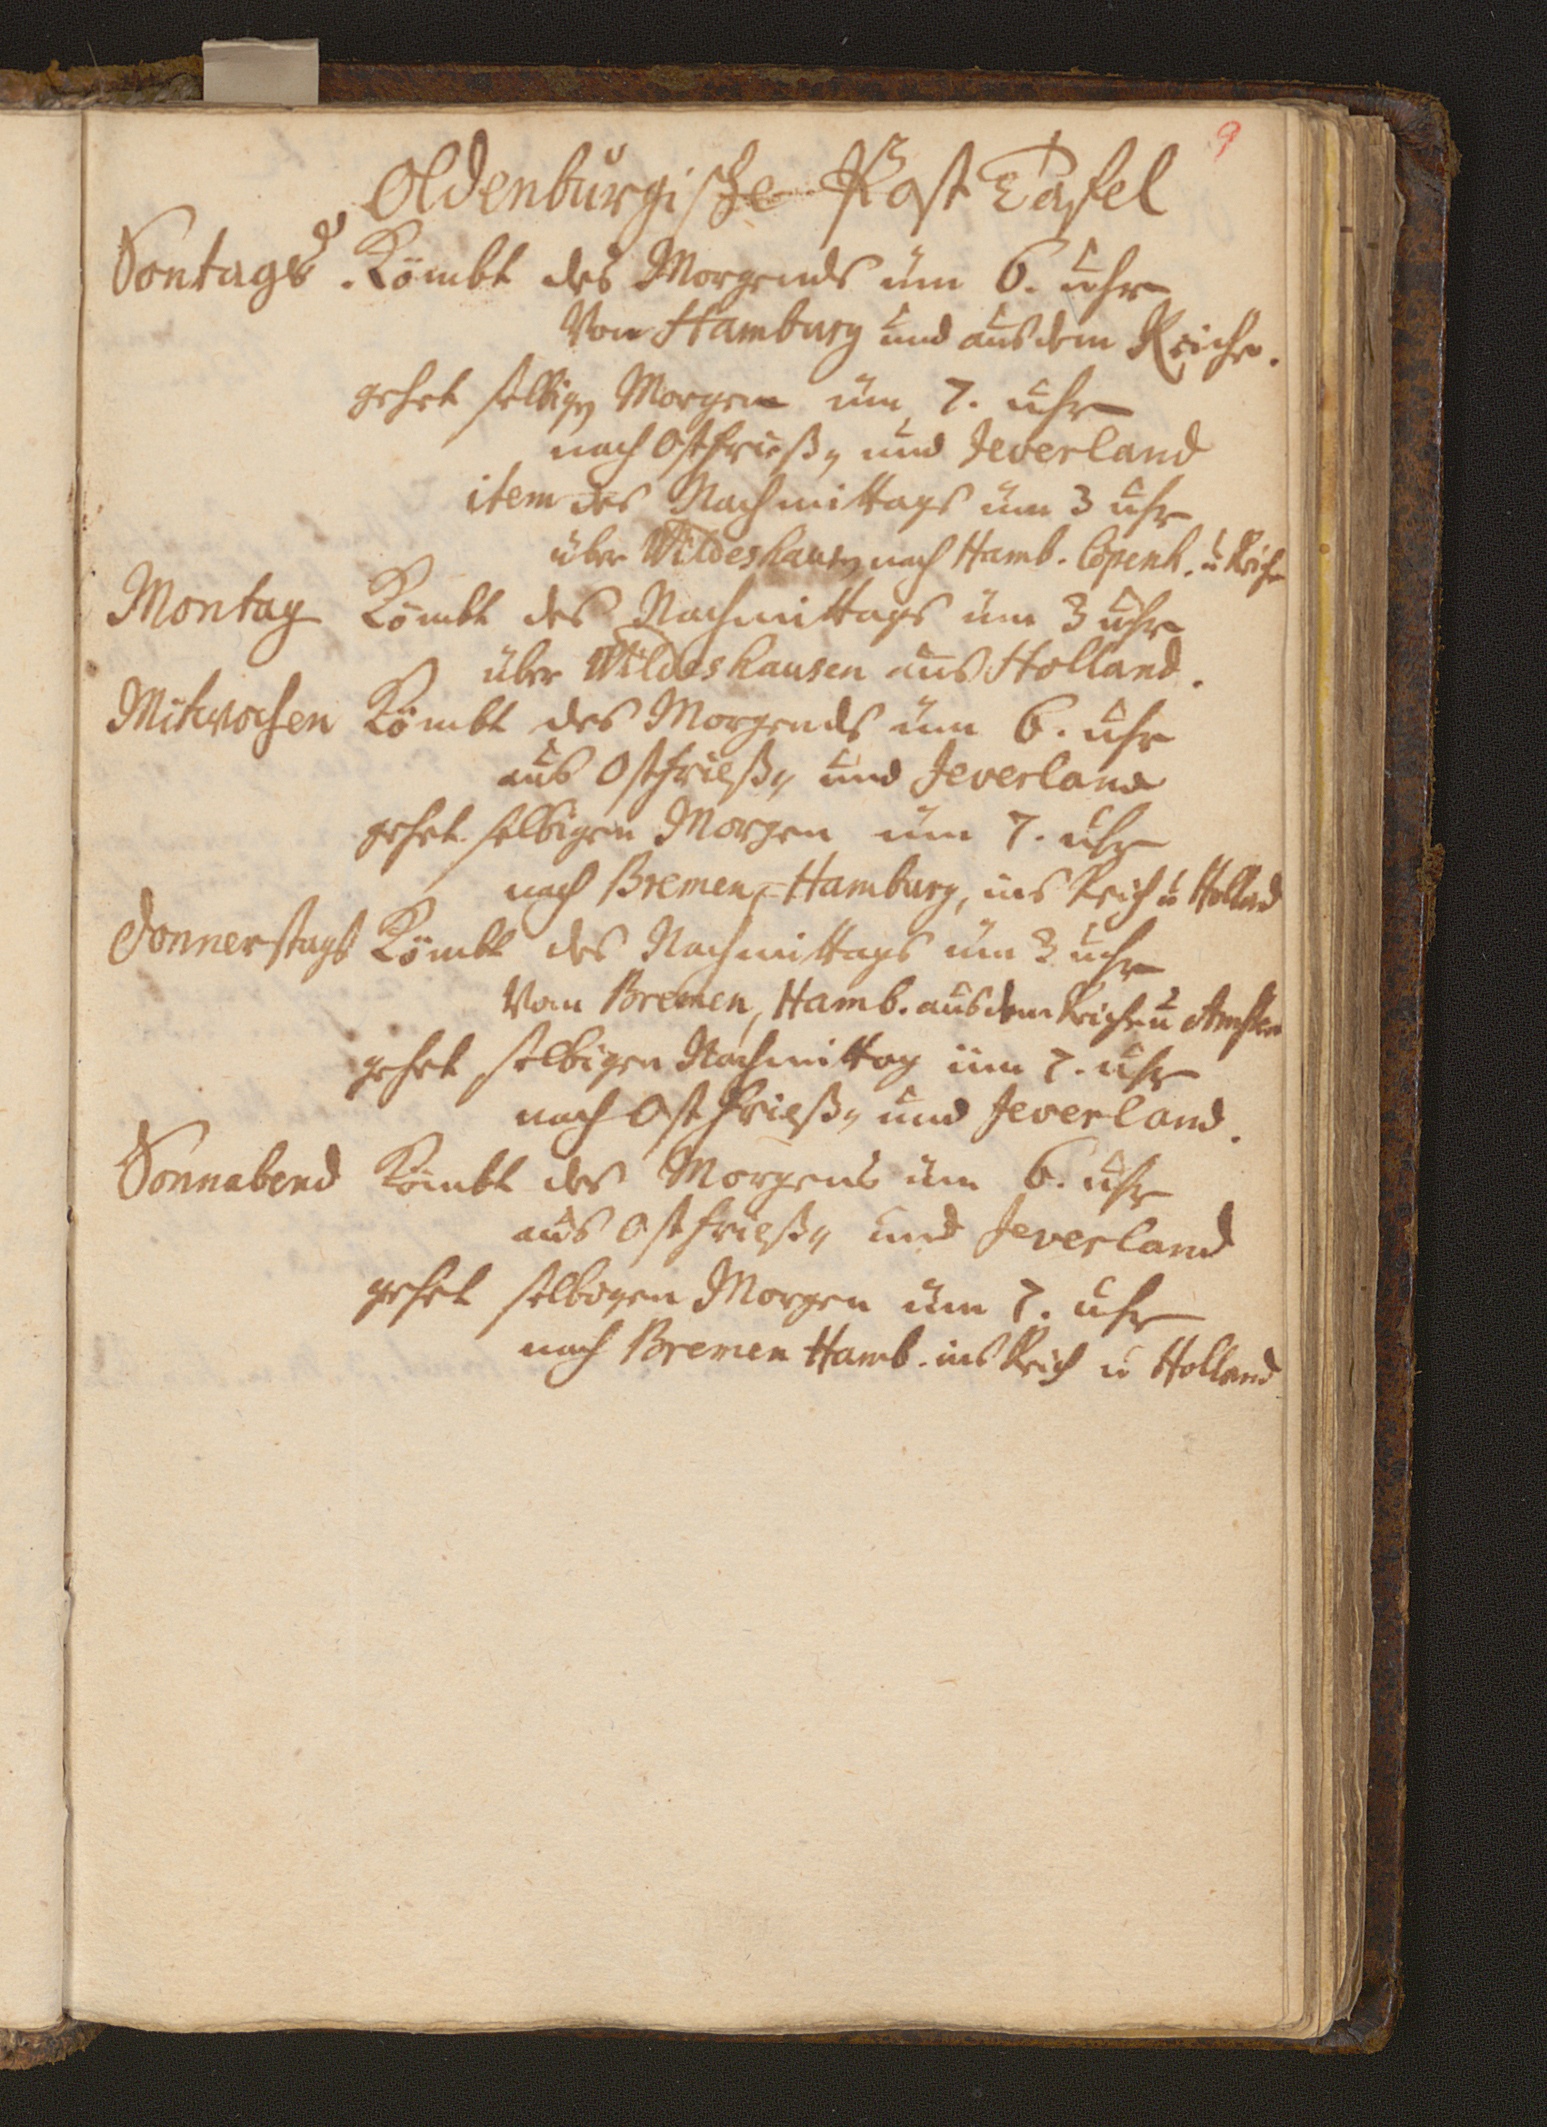 9
Oldenburgische Post Tafel
Sontags Kömbt des Morgends um 6. uhr
Von Hamburg und aus dem Reiche.
gehet selbigen Morgen um 7. uhr
nach Ostfrieß- und Jeverland
item des Nachmittags um 3 uhr
über Wildeshausen nach Hamb. Copenh. u Reiche
Montag Kömbt des Nachmittags um 3 uhr
über Wildeshausen aus Holland.
Mitwochen Kömbt des Morgends um 6. uhr
aus Ostfrieß- und Jeverland
gehet selbigen Morgen um 7. uhr
nach Bremen, Hamburg, ins Reich u Holland
Donnerstags Kömbt des Nachmittags um 3 uhr
Von Bremen, Hamb. aus dem Reiche u
gehet selbigen Nachmittag um 7. uhr
nach Ostfrieß- und Jeverland.
Sonnabend Kömbt des Morgens um 6. uhr
aus Ostfrieß- und Jeverland
gehet selbigen Morgen um 7. uhr
nach Bremen Hamb. ins Reich u Holland